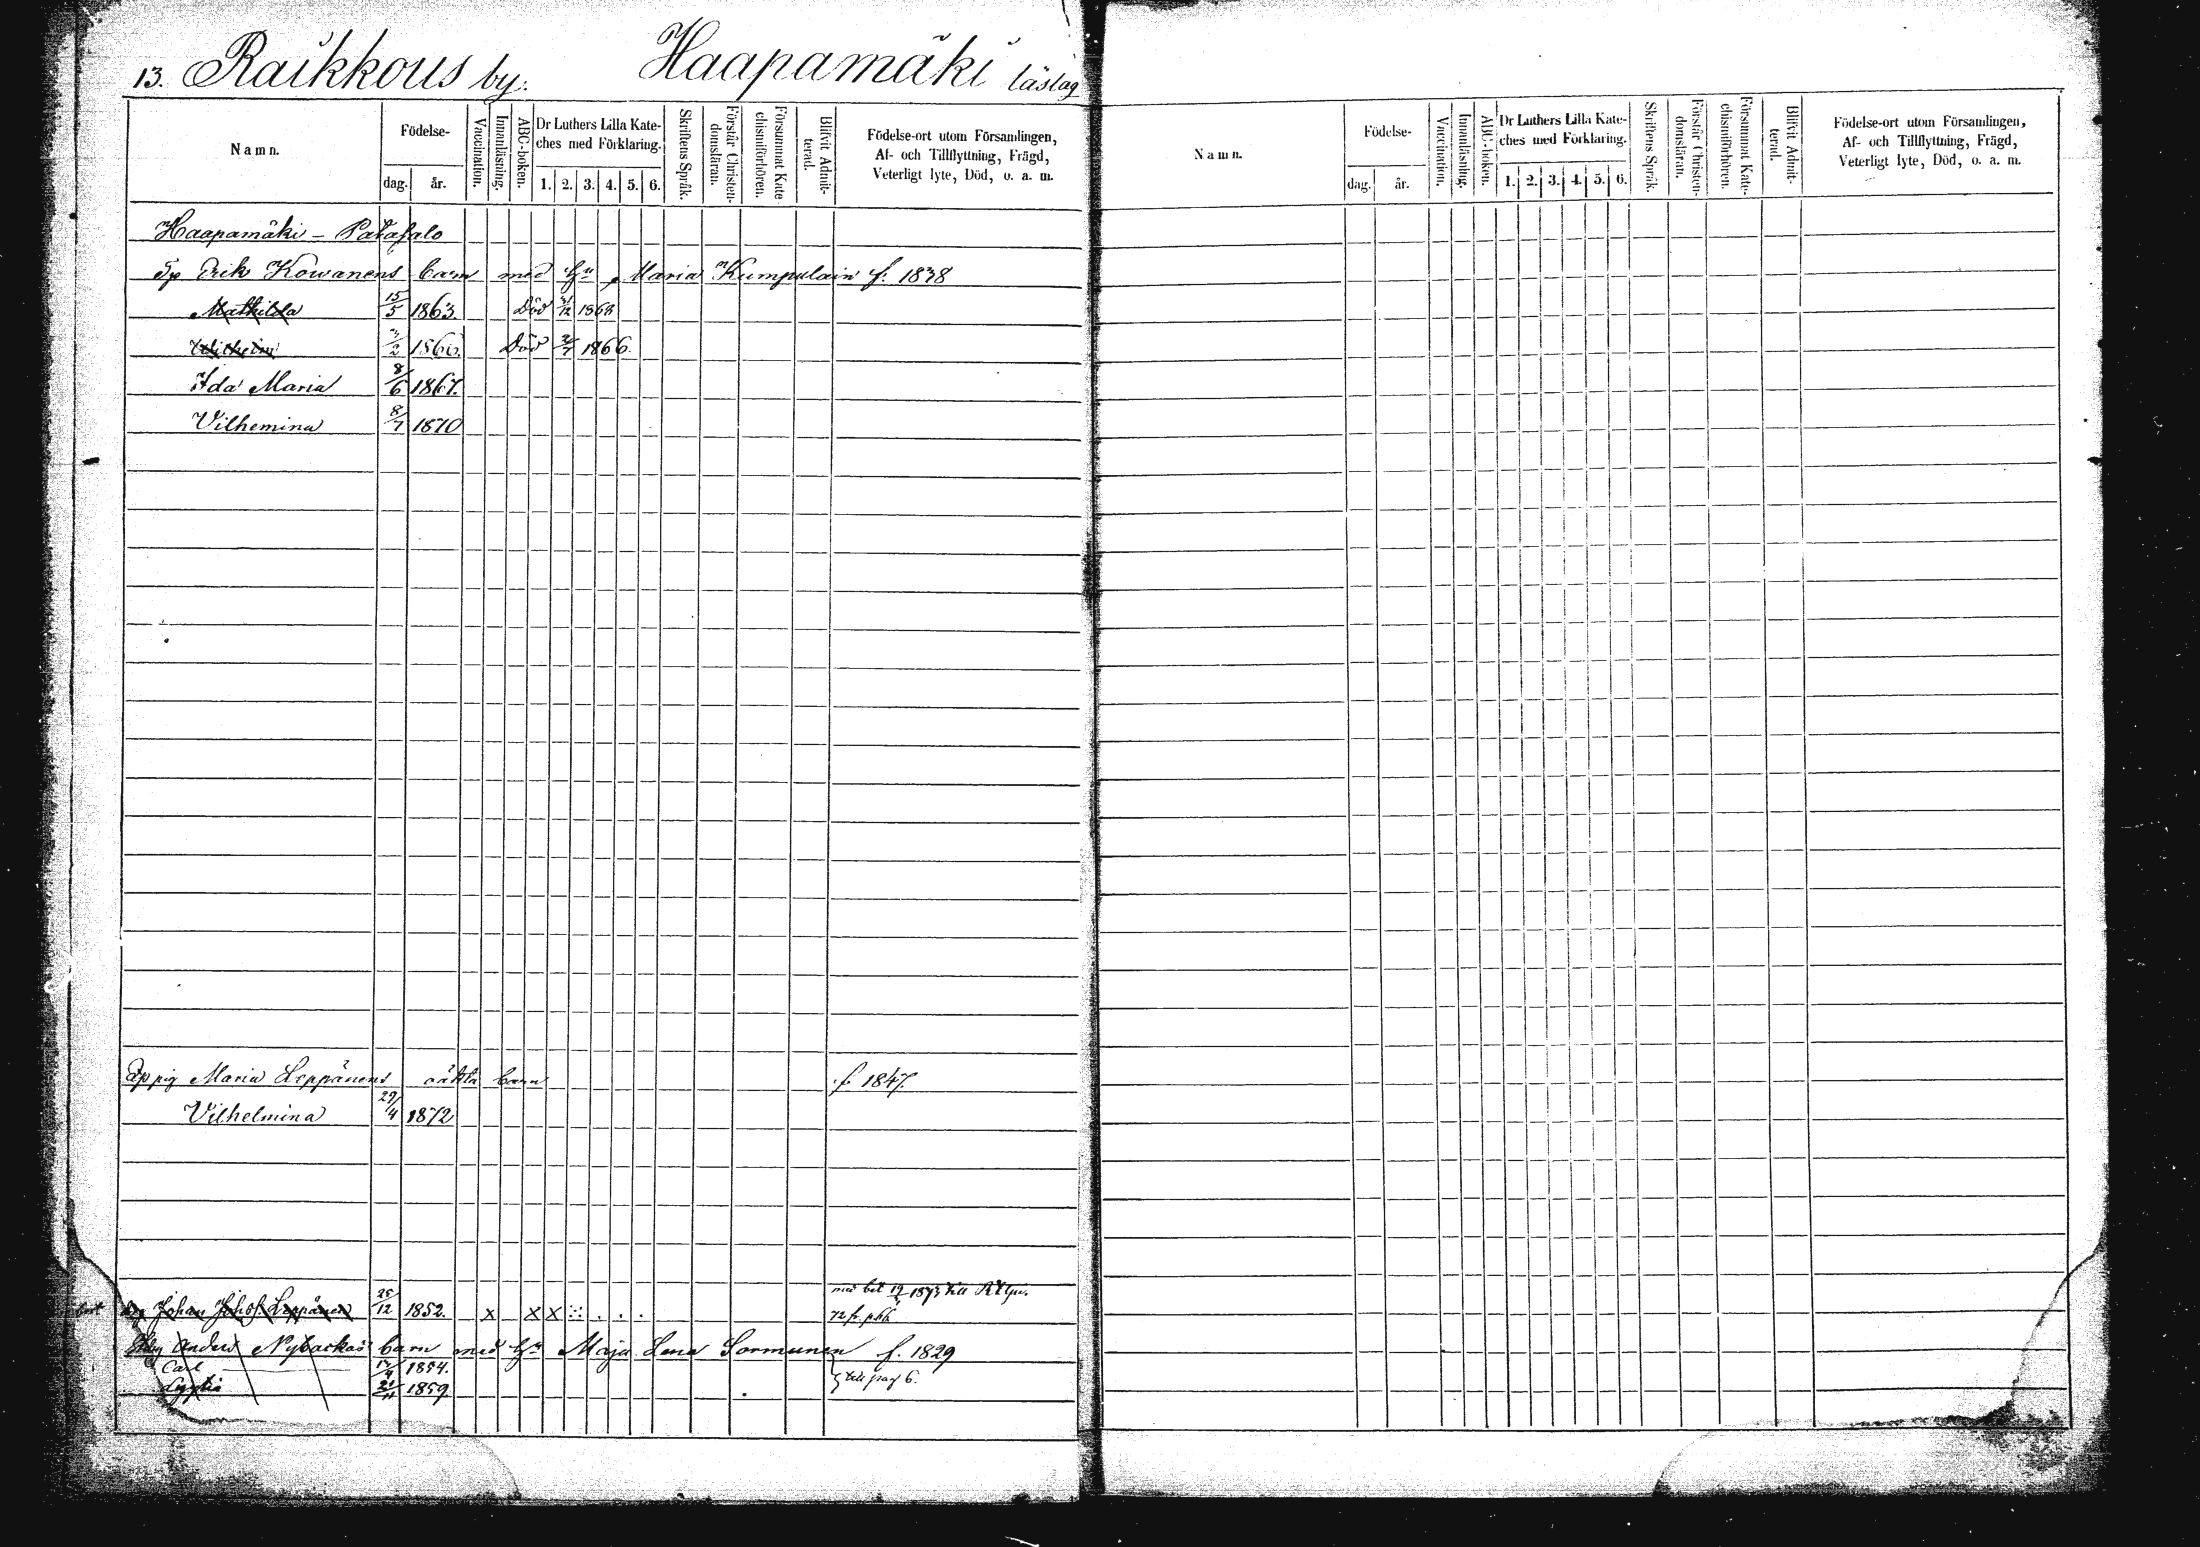 13. Raikkous by. Haapamäki läslag
Namn.
Födelse-
dag. år.
Vaccination.
Innanläsning.
ABC-boken.
Dr Luthers Lilla Kate-
ches med Förklaring.
1. 2. 3. 4. 5. 6.
Skriftens Språk.
Förstår Christen-
domsläran.
Försummat Kate
chismiförhören.
Blifvit Admit-
terad.
Födelse-ort utom Församlingen,
Af- och Tillflyttning, Frägd,
Veterligt lyte, Död, o. a. m.
Haapamäki – Patasalo
Erik Kowanens barn med Maria Kumpulain f. 1838
Mathilda 15/5 1863. Död 1868
Wilhelm 1866. Död 1866.
Ida Maria 8/6 1867.
Vilhemina 8/7 1870
Maria Leppänens oäkta barn f. 1847.
Vilhelmina 29/4 1872
Johan Leppänen 25/12 1852. x x x . . .
med bet 1873 till
Nybackas barn med Maja Lena Sormunen f. 1829
Carl 1854.
1859.
till pag 6.
Namn.
Födelse-
dag. år.
Vaccination.
Innanläsning.
ABC-boken.
Dr Luthers Lilla Kate-
ches med Förklaring.
1. 2. 3. 4. 5. 6.
Skriftens Språk.
Förstår Christen-
domsläran.
Försummat Kate-
chismiförhören.
Blifvit Admit-
terad.
Födelse-ort utom Församlingen,
Af- och Tillflyttning, Frägd,
Veterligt lyte, Död, o. a. m.